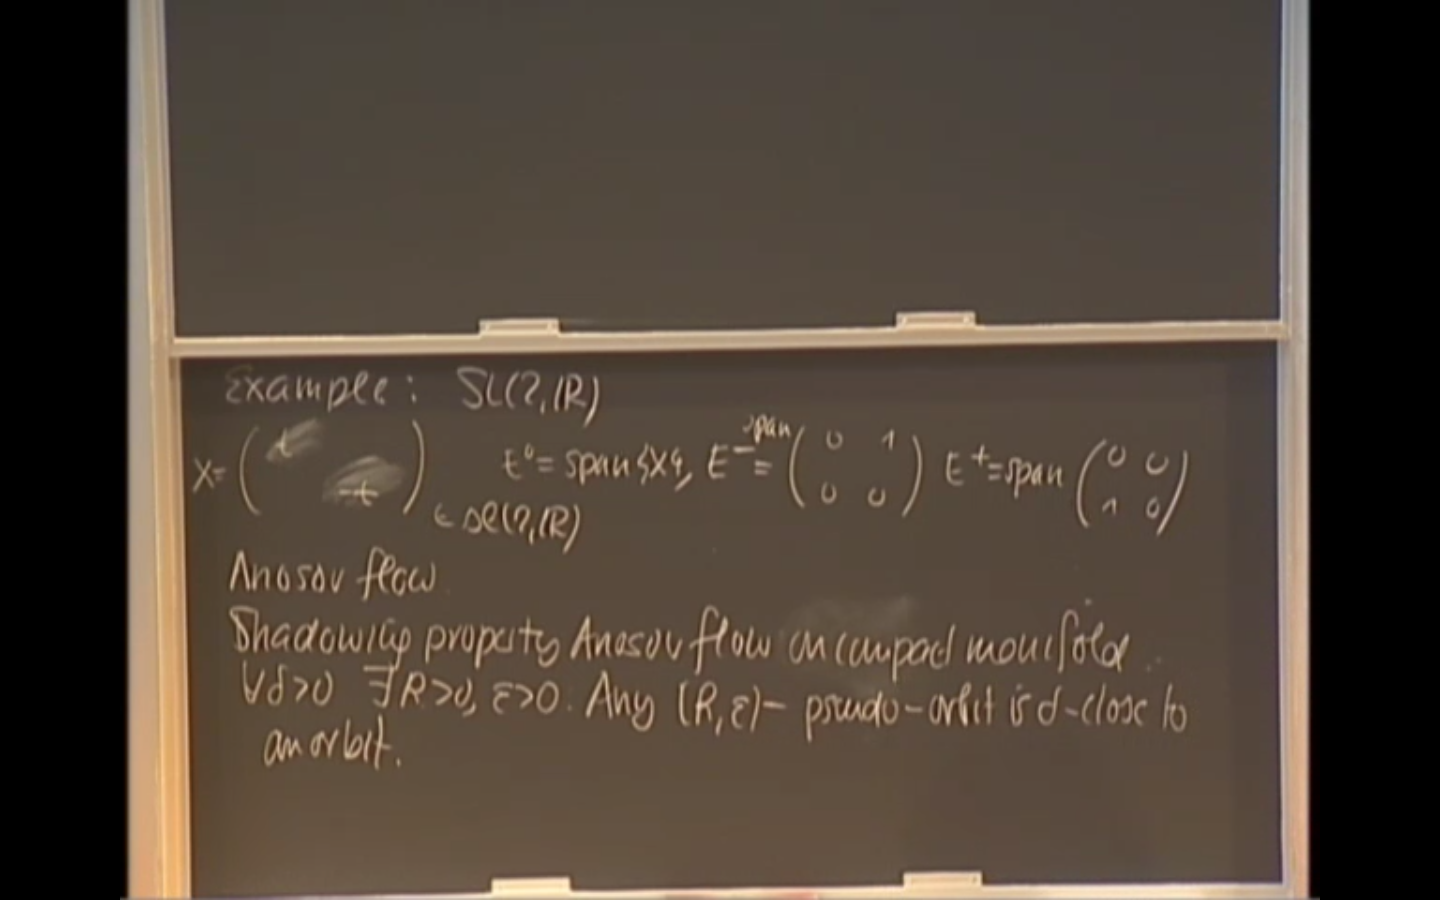 Example: SL(2,ℝ)
X= ( t -t ) ∈ sl(2,ℝ) E⁰ = span{X}, E⁻ = span ( 0 1 0 0 ) E⁺ = span ( 0 0 1 0 )
Anosov flow
Shadowing property Anosov flow on compact manifold.
∀δ>0 ∃R>0, ε>0. Any (R,ε)- pseudo-orbit is δ-close to
an orbit.